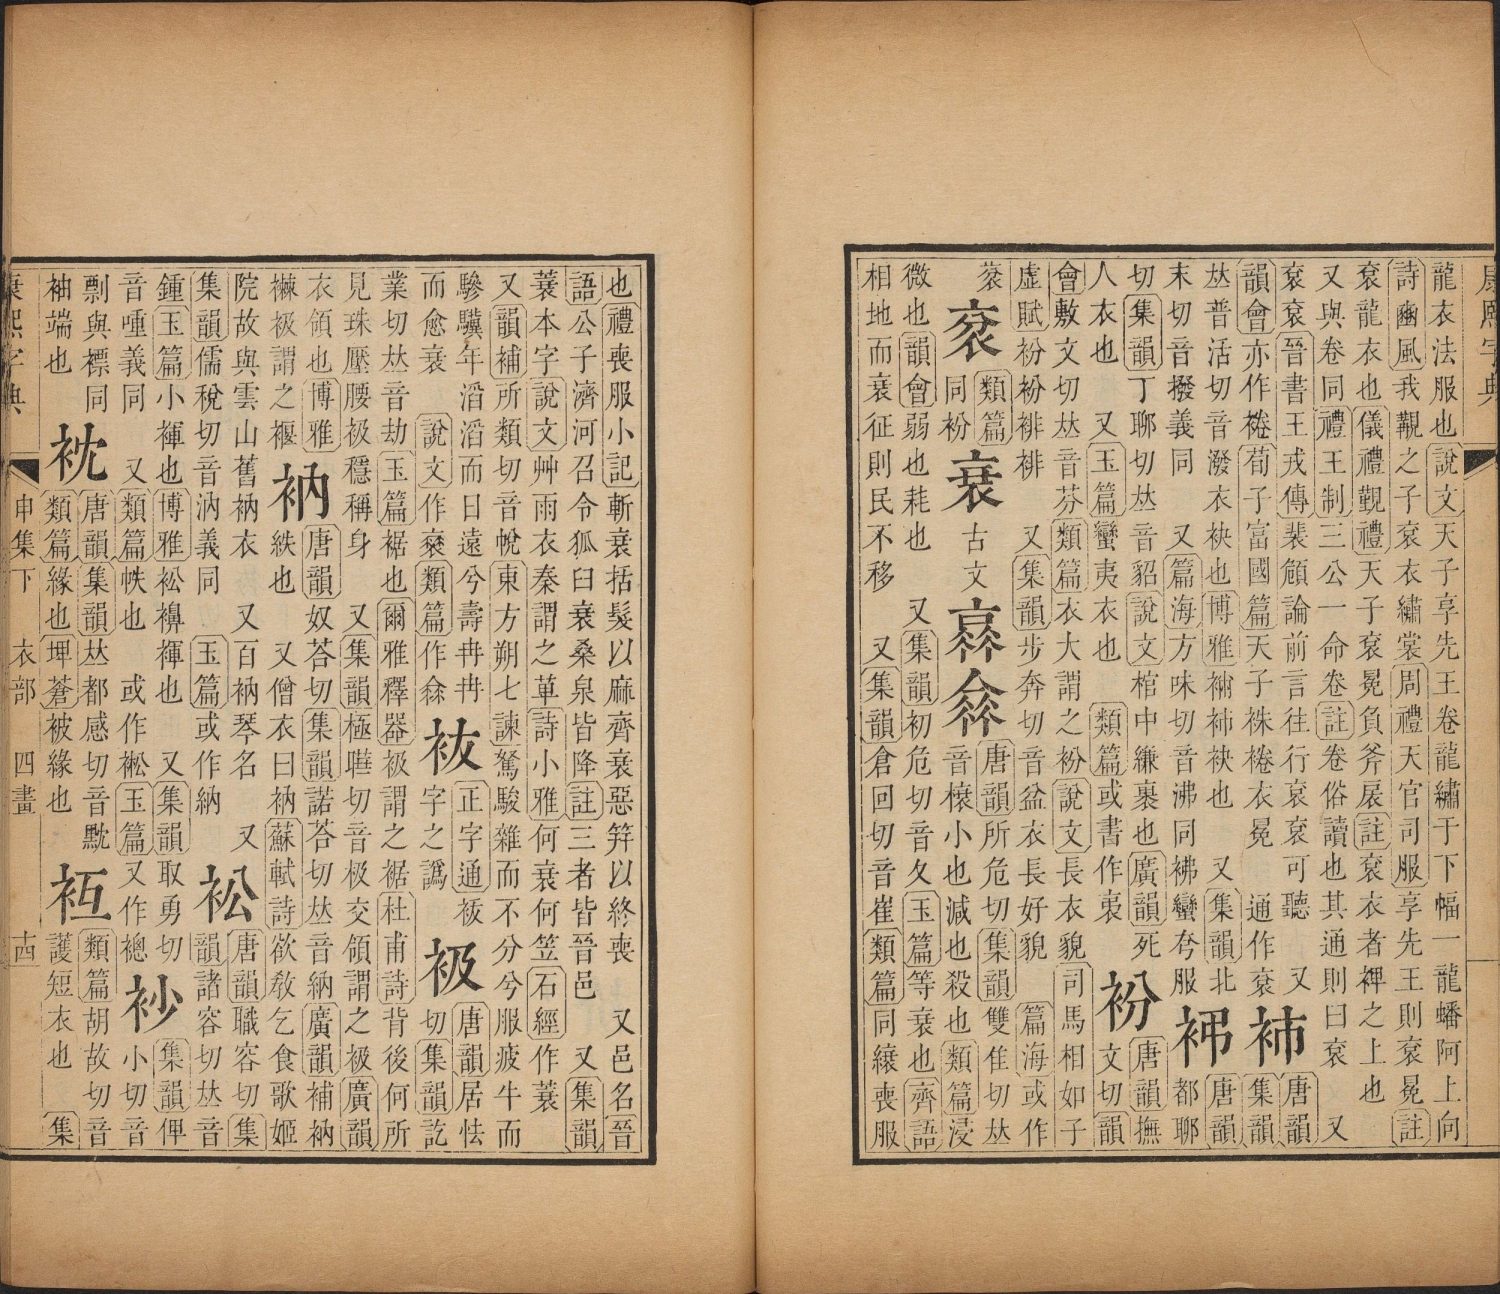 康熙字典
龍衣法服也說文天子享先王卷龍繡于下幅一龍蟠阿上向
詩豳風我覯之子衮衣繡裳周禮天官司服享先王則衮冕註
衮龍衣也儀禮覲禮天子衮冕負斧扆註衮衣者裨之上也
又與卷同禮王制三公一命卷註卷俗讀也其通則曰衮 又
衮衮晉書王戎傳裴頠論前言往行衮衮可聽 又
韻會亦作裷荀子富國篇天子袾裷衣冕 通作衮
䘠
唐韻
集韻
𠀤普活切音潑衣袂也博雅襧䘠袂也 又集韻北
末切音撥義同 又篇海方味切音沸同袡蠻夸服
䘟
唐韻
都聊
切集韻丁聊切𠀤音貂說文棺中縑裏也廣韻死
人衣也 又玉篇蠻夷衣也 類篇或書作裊
衯
唐韻撫
文切韻
會敷文切𠀤音芬類篇衣大謂之衯說文長衣貌 司馬相如子
虛賦衯衯裶裶 又集韻步奔切音盆衣長好貌 篇海或作
衮
類篇
同衯
衰
古文
唐韻所危切集韻雙隹切𠀤
音榱小也減也殺也類篇浸
微也韻會弱也耗也 又集韻初危切音夂玉篇等衰也齊語
相地而衰征則民不移 又集韻倉回切音崔類篇同縗喪服
也禮喪服小記斬衰括髮以麻齊衰惡笄以終喪 又邑名晉
語公子濟河召令狐臼衰桑泉皆降註三者皆晉邑 又集韻
蓑本字說文艸雨衣秦謂之萆詩小雅何衰何笠石經作蓑
又韻補所類切音帨東方朔七諫駑駿雜而不分兮服疲牛而
驂驥年滔滔而日遠兮壽冉冉
而愈衰 說文作 類篇作
正字通袚
字之譌
衱
唐韻居怯
切集韻訖
業切𠀤音劫玉篇裾也爾雅釋器衱謂之裾杜甫詩背後何所
見珠壓腰衱穩稱身 又集韻極曄切音极交領謂之衱廣韻
衣領也博雅
襋衱謂之褗
衲
唐韻奴荅切集韻諾荅切𠀤音納廣韻補衲
紩也 又僧衣曰衲蘇軾詩欲敎乞食歌姬
院故與雲山舊衲衣 又百衲琴名 又
集韻儒稅切音汭義同 玉篇或作納
衳
唐韻職容切集
韻諸容切𠀤音
鍾玉篇小褌也博雅衳襣褌也 又集韻取勇切
音喠義同 又類篇帙也 或作䘴玉篇又作
集韻俾
小切音
剽與褾同
袖端也
衴
唐韻集韻𠀤都感切音黕
類篇緣也埤蒼被緣也
类篇胡故切音
護短衣也 集
康熙字典 申集下 衣部 四畫 十四